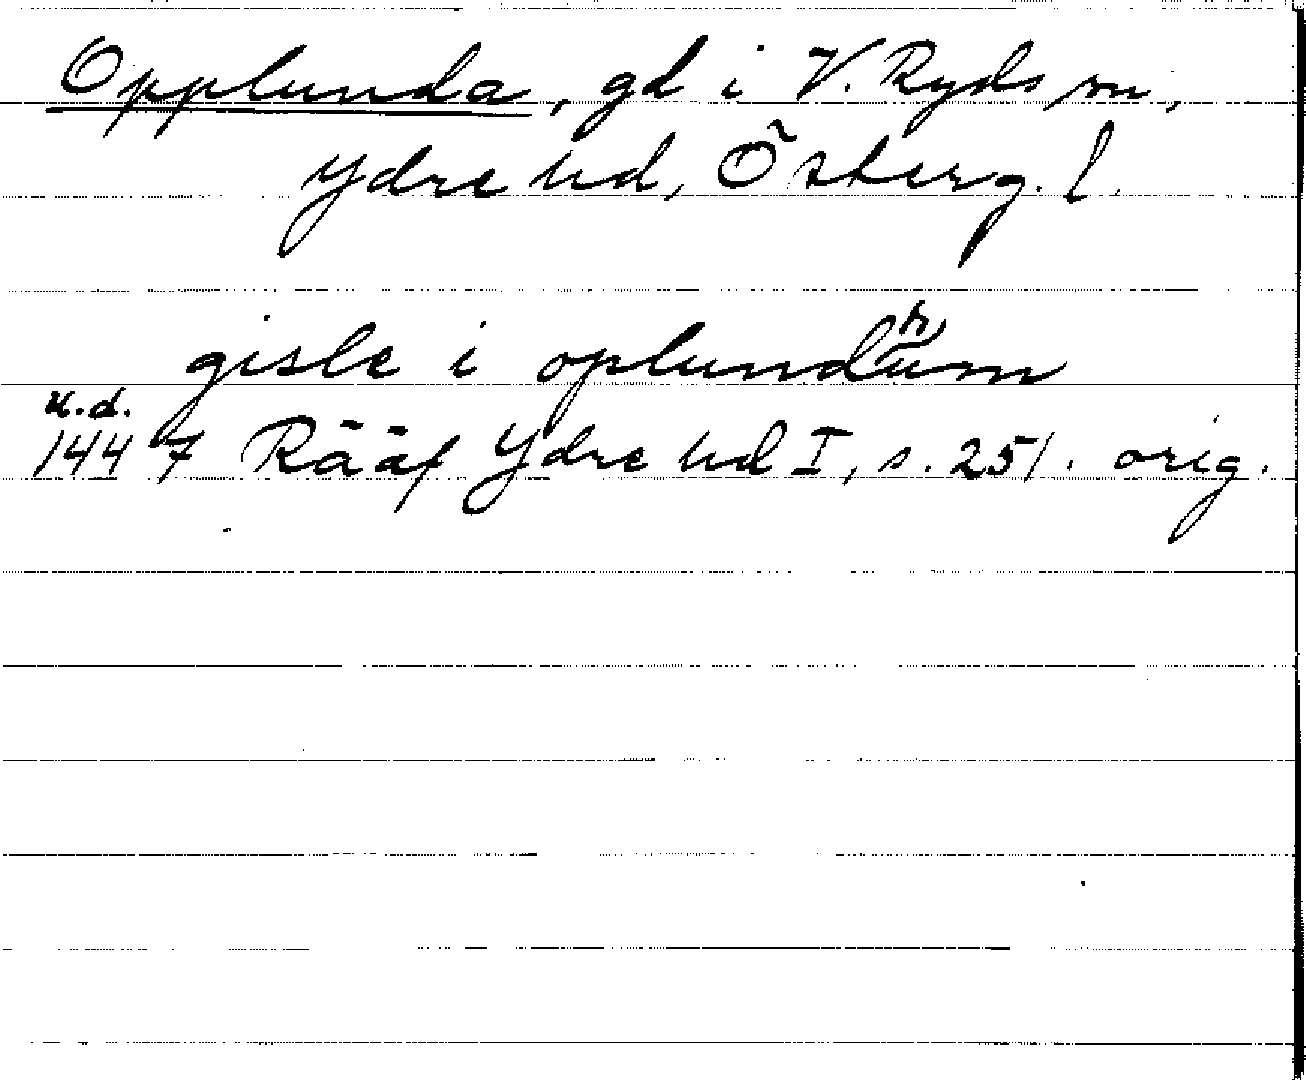 Opplunda, gd i V. Ryds sn,
Ydre hd, Österg. l.
gisle i oplundhum
u.d.
1447 Rääf Ydre hd I, s. 251. orig.